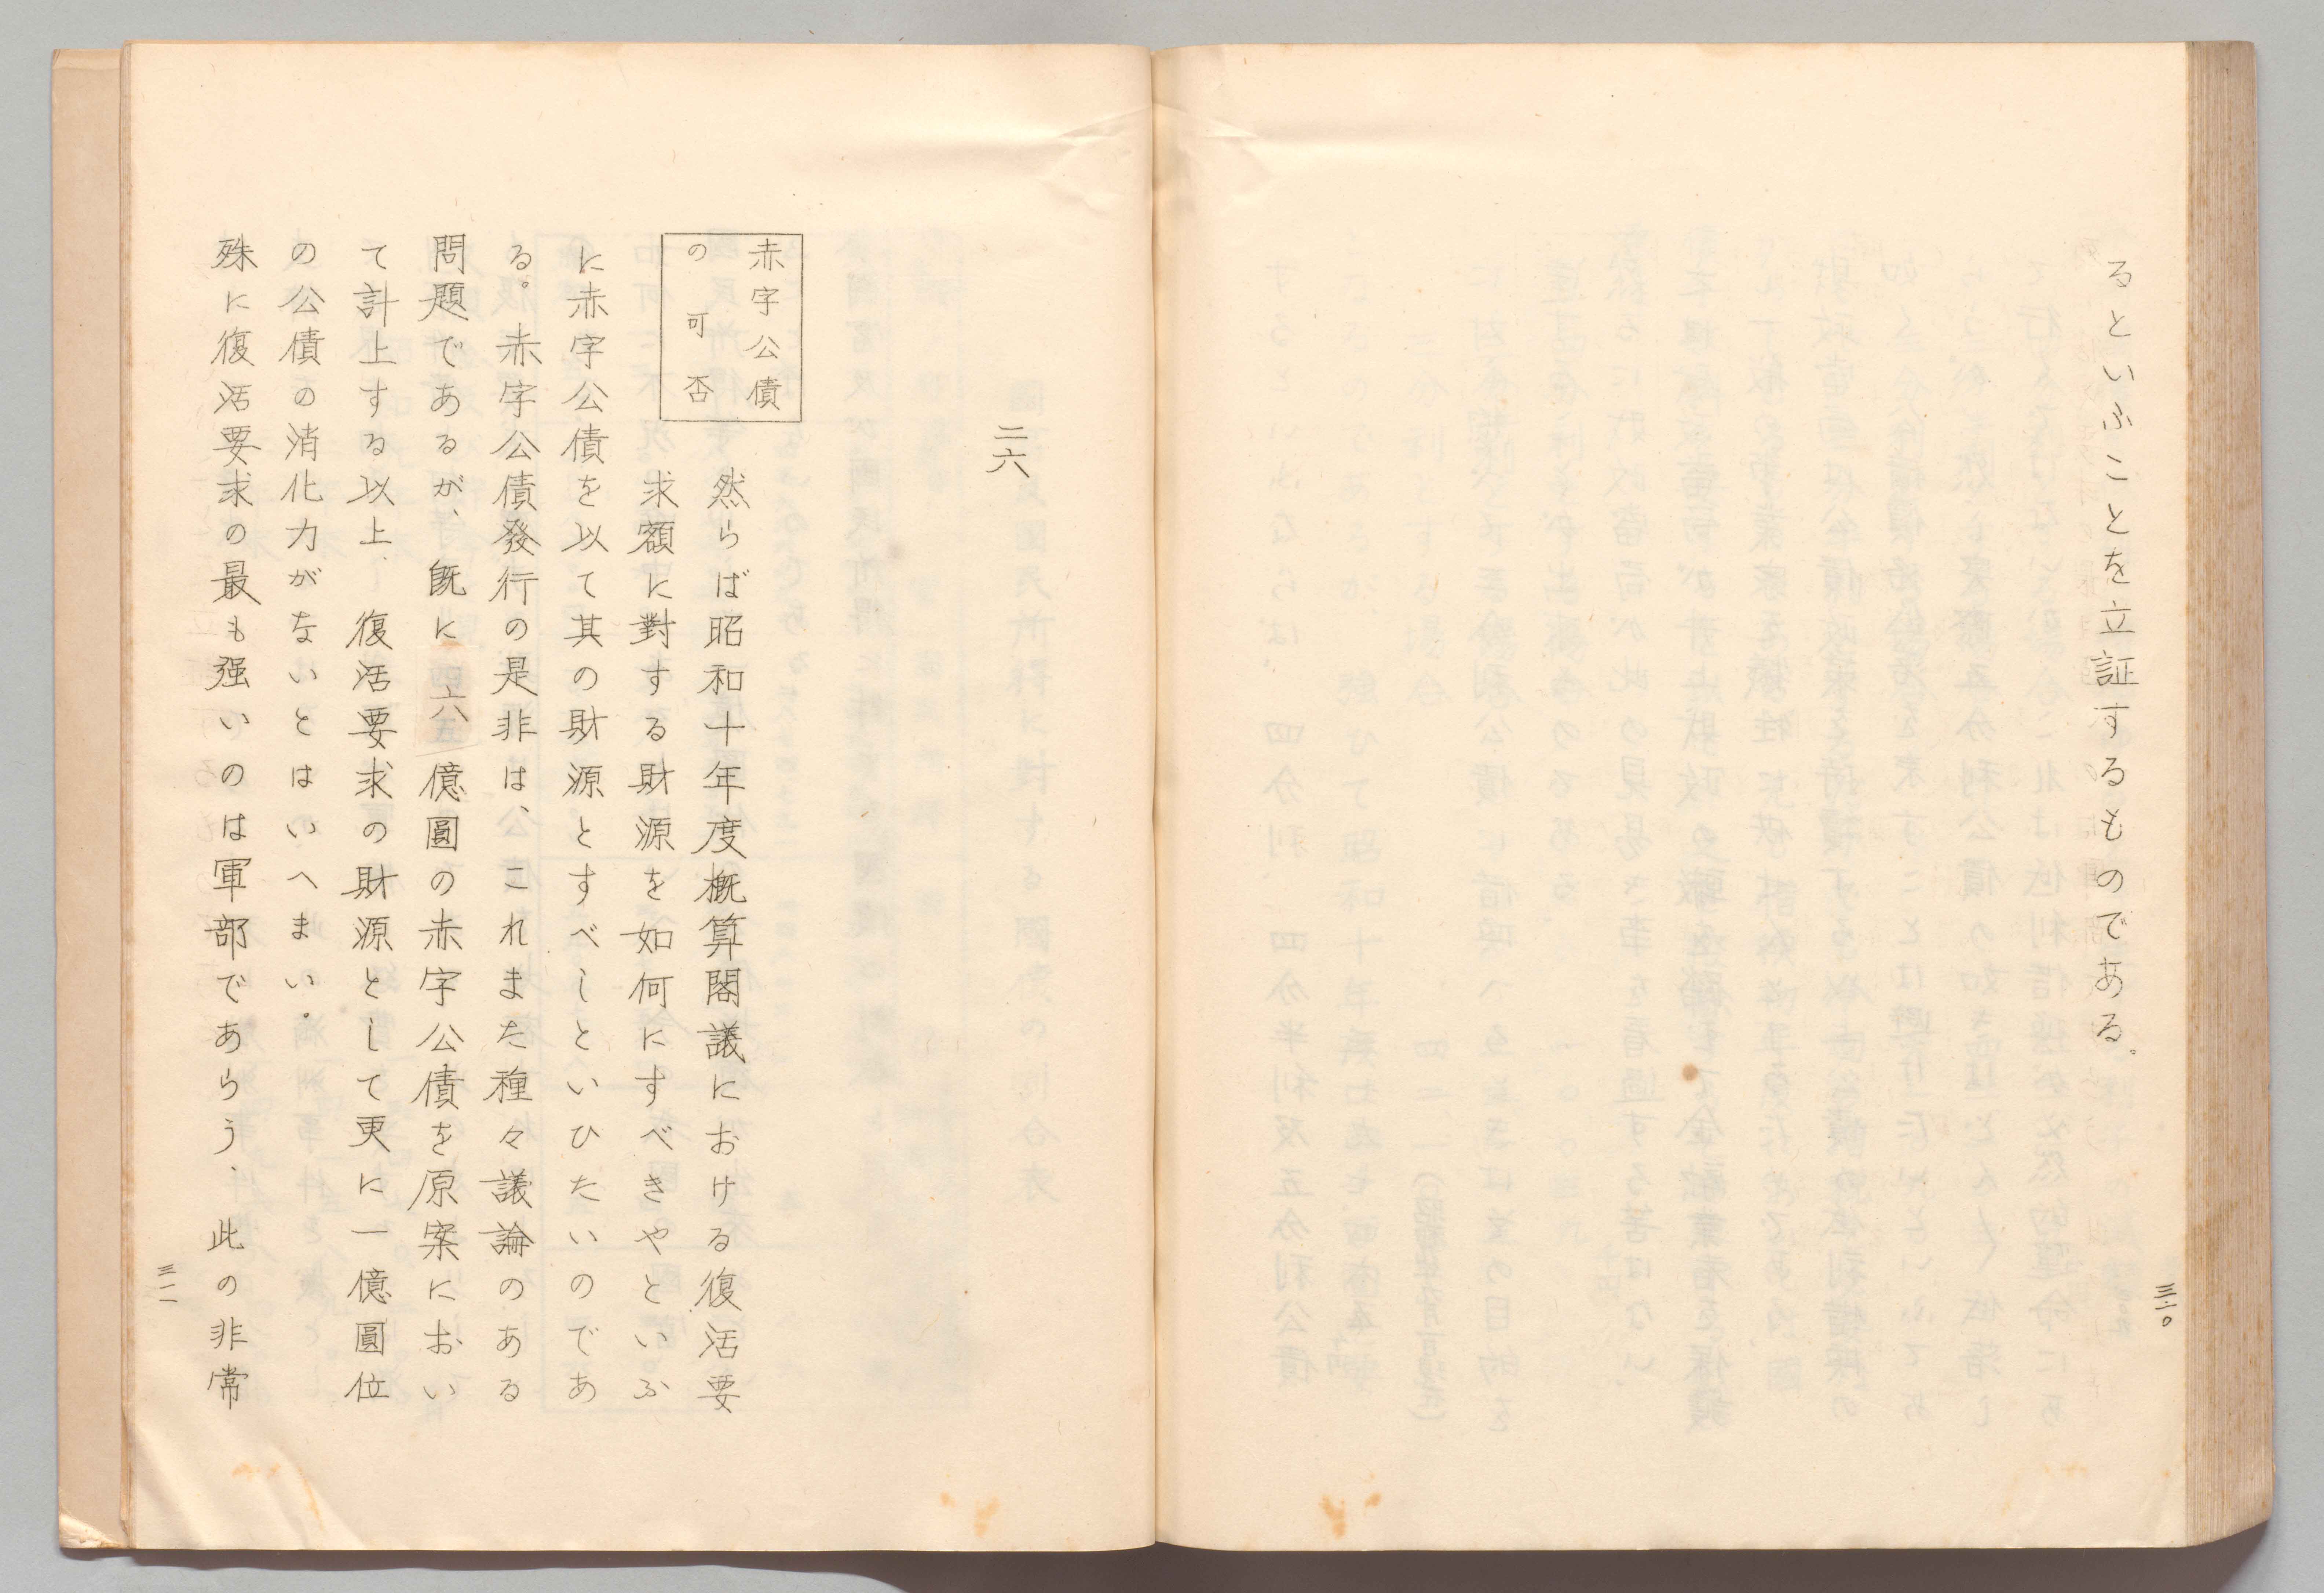 るといふことを立証するものである。
三一〇
二六
赤字公債
の可否
然らば昭和十年度概算閣議における復活要
求額に對する財源を如何にすべきやといふ
に赤字公債を以て其の財源とすべしといひたいのであ
る。赤字公債發行の是非は、これまた種々議論のある
問題であるが、既に六億圓の赤字公債を原案におい
て計上する以上、復活要求の財源として更に一億圓位
の公債の消化力がないとはいへまい。
殊に復活要求の最も强いのは軍部であらう、此の非常
三一一